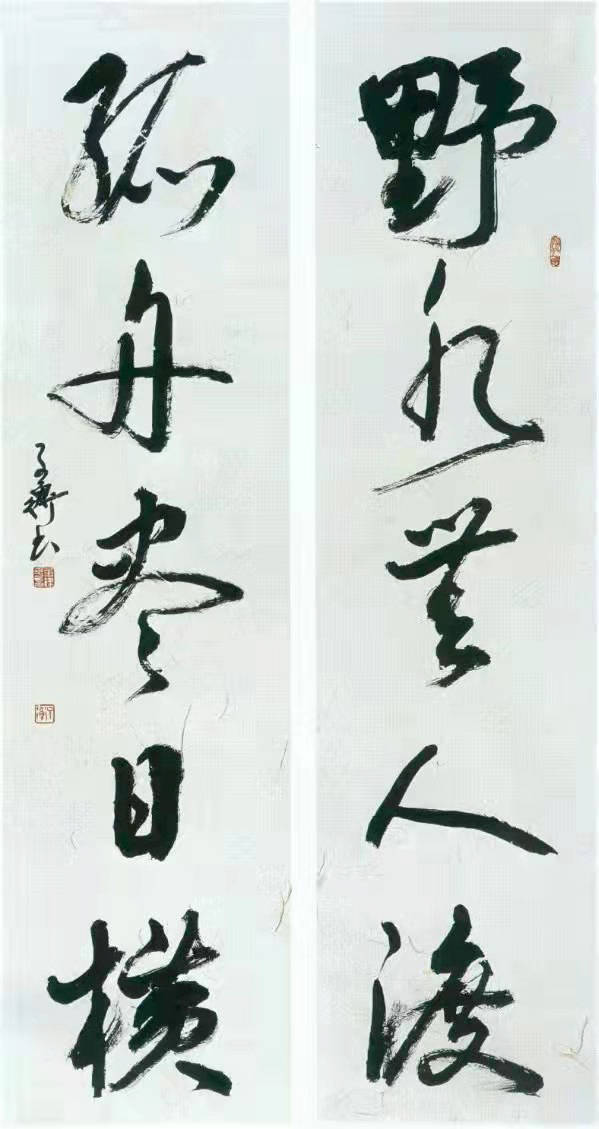 野水無人渡
孤舟盡日橫
子齋書